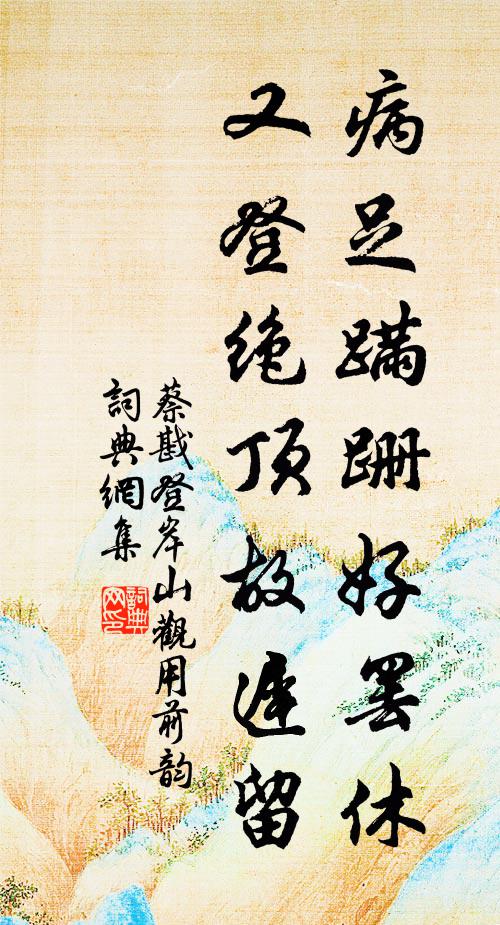 病足蹒跚好罢休
又登绝顶故迟留
蔡戡登岸山觀用前韵
詞典網集
詞典網印